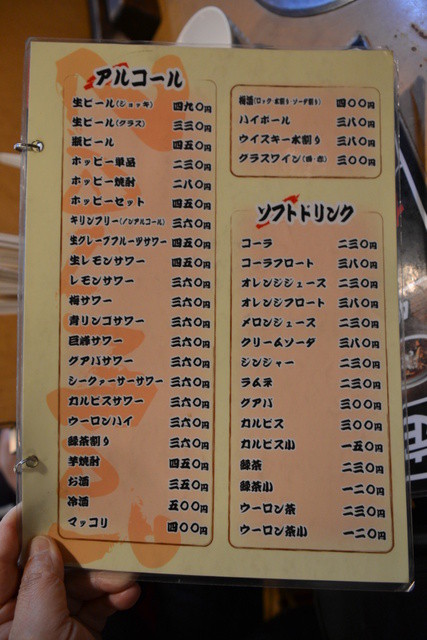 アルコール
生ビール(ジョッキ) 四九〇円
生ビール(グラス) 三三〇円
瓶ビール 四五〇円
ホッピー単品 二三〇円
ホッピー焼酎 二八〇円
ホッピーセット 四五〇円
キリンフリー(ノンアルコール) 三六〇円
生グレープフルーツサワー 四五〇円
生レモンサワー 四五〇円
レモンサワー 三六〇円
梅サワー 三六〇円
青リンゴサワー 三六〇円
巨峰サワー 三六〇円
グアバサワー 三六〇円
シークァーサーサワー 三六〇円
カルピスサワー 三六〇円
ウーロンハイ 三六〇円
緑茶割り 三六〇円
芋焼酎 四五〇円
お酒 三五〇円
冷酒 五〇〇円
マッコリ 四〇〇円
梅酒(ロック・水割り・ソーダ割り) 四〇〇円
ハイボール 三八〇円
ウイスキー水割り 三八〇円
グラスワイン(赤・白) 三〇〇円
ソフトドリンク
コーラ 二三〇円
コーラフロート 三八〇円
オレンジジュース 二三〇円
オレンジフロート 三八〇円
メロンジュース 二三〇円
クリームソーダ 三八〇円
ジンジャー 二三〇円
ラムネ 二三〇円
グアバ 三〇〇円
カルピス 三〇〇円
カルピス小 一五〇円
緑茶 二三〇円
緑茶小 一二〇円
ウーロン茶 二三〇円
ウーロン茶小 一二〇円